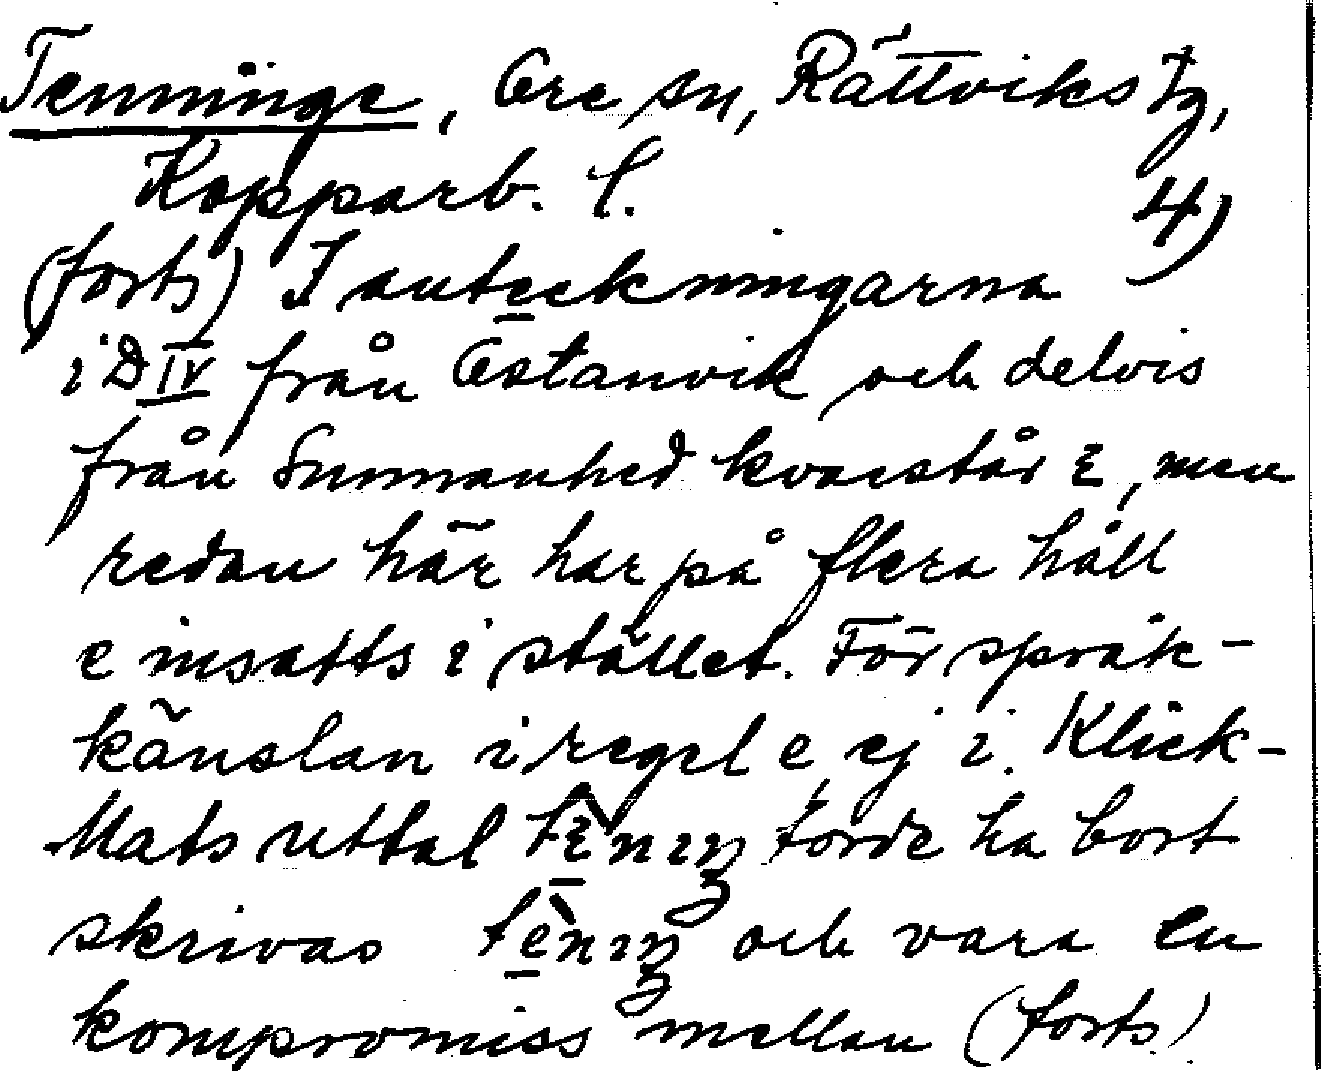 Tenninge, Ore sn, Rättviks tg,
Kopparb. l.
4)
(forts) I anteckningarna
i D IV från Östanvik och delvis
från Sunnanhed kvarstår ɛ, men
redan här har på flera håll
e insatts i stället. För språk-
känslan i regel e, ej i. Klick-
Mats uttal torde ha bort
skrivas och vara en
kompromiss mellan (forts)